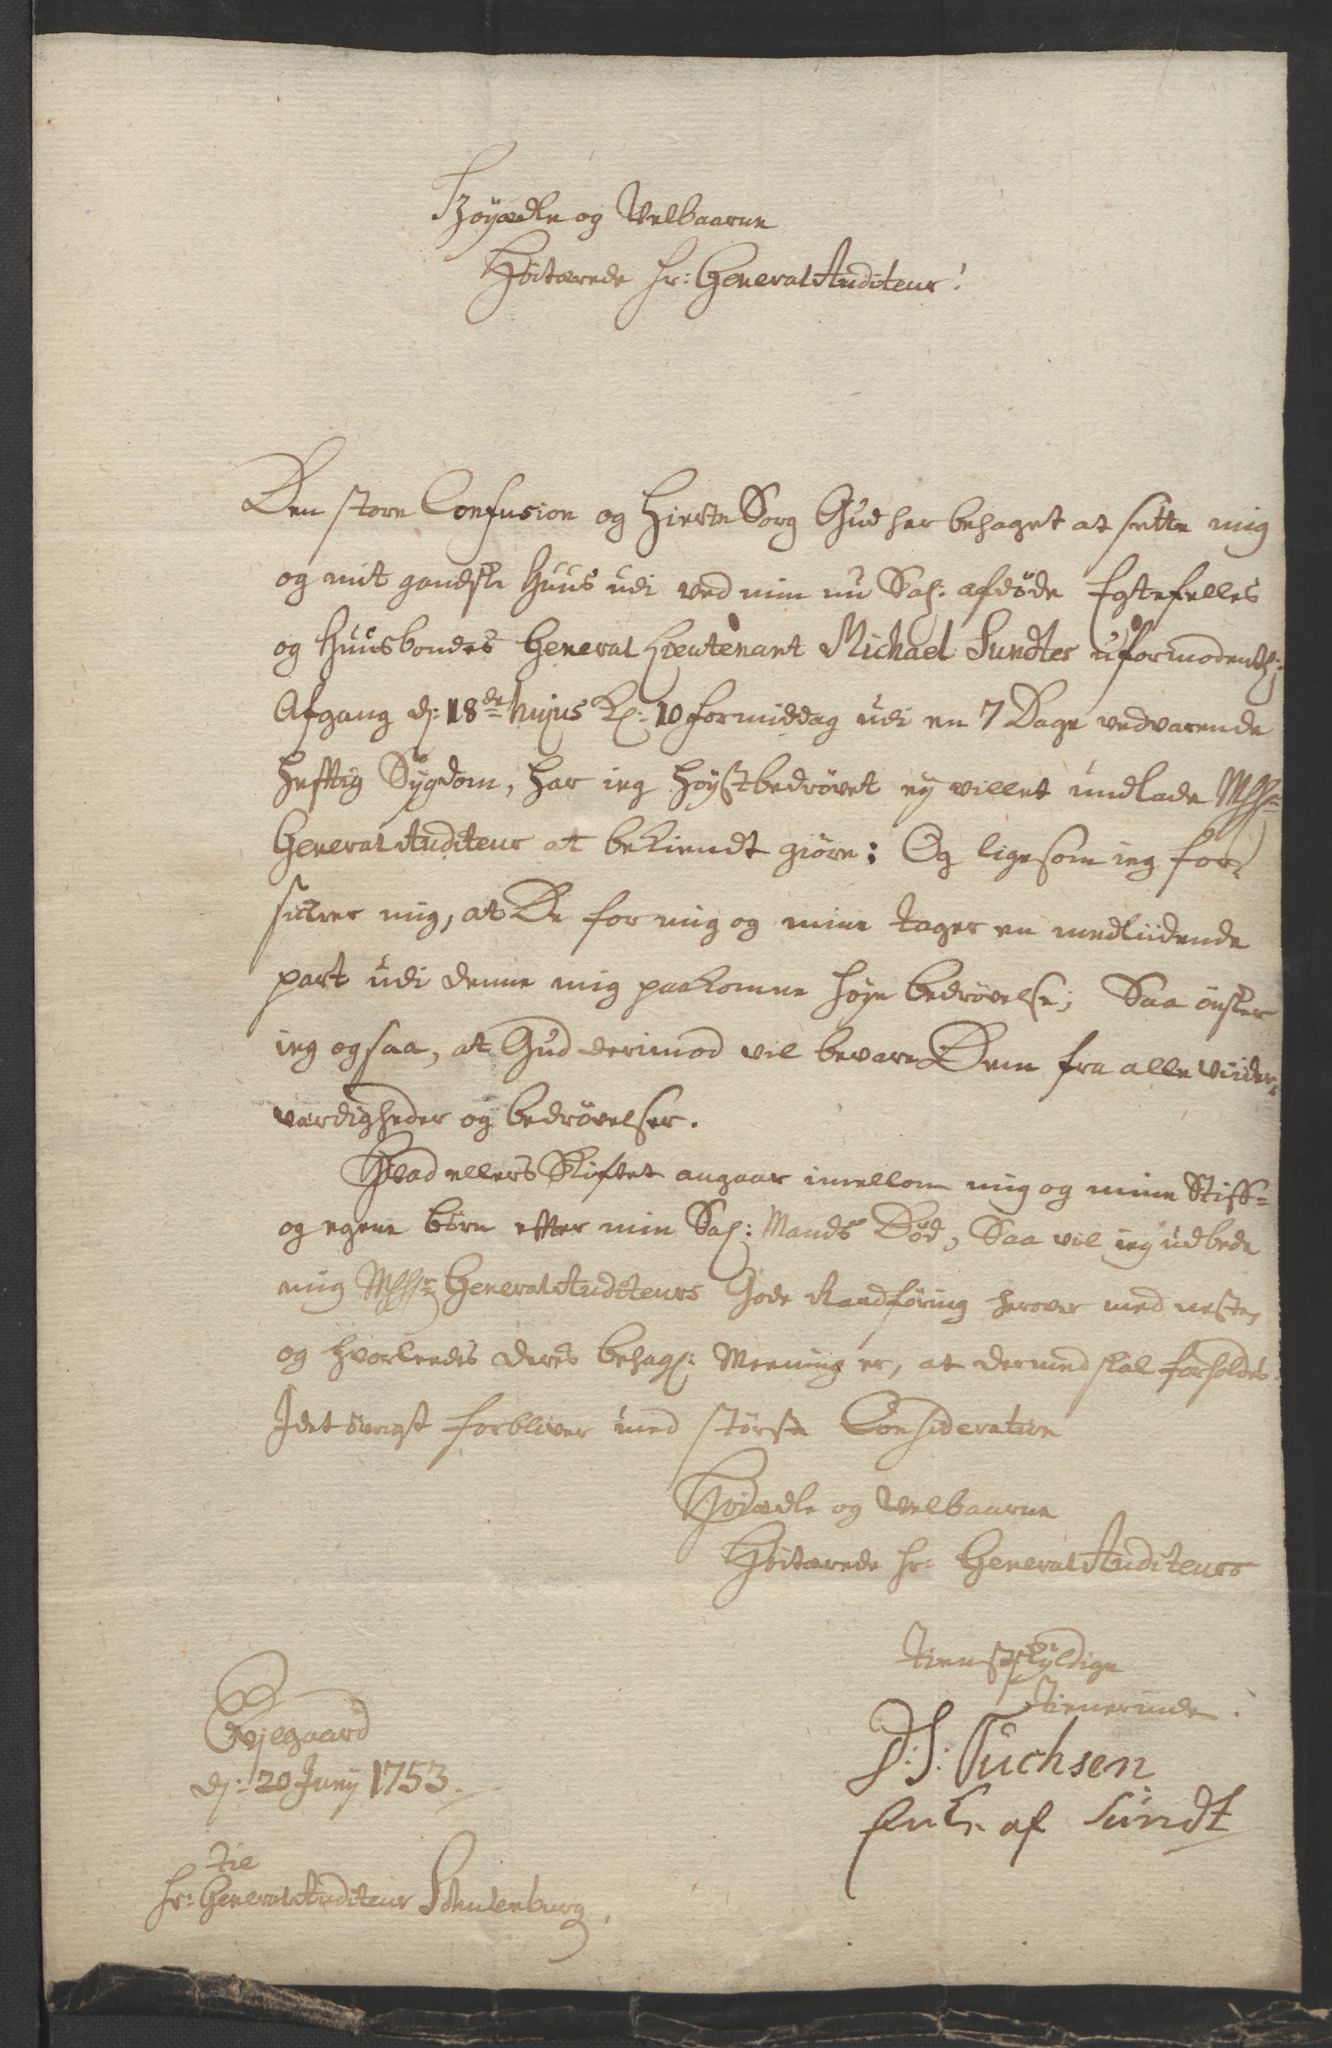 Høyædle og Velbaarne
Høitærede hr: General Auditeur!
Den store Confusion og Hierte Sorg Gud har behaget at sette mig
og mit gandske Huus udi ved min nu Sal: afdøde Egtefelles
og Huusbondes General Lieutenant Michael Sundtes uformodentl:
Afgang d: 18de hujus Kl: 10 formiddag udi en 7 Dage vedvarende
hefftig Sygdom, har ieg høystbedrøvet ey villet undlade
General Auditeur at bekiendt giøre: Og ligesom ieg for-
sikrer mig, at De for mig og mine tager en medliidende
part udi denne mig paakomne høye bedrøvelse; Saa ønsker
ieg ogsaa, at Gud derimod vil bevare Dem fra alle viider-
værdigheder og bedrøvelser.
Hvad ellers Skiftet angaar imellom mig og mine Stiff-
og egene børn efter min Sal: Mands Død, Saa vil ieg udbede
mig General Auditeurs Gode Raadføring herover med neste,
og hvorleedes deres behagl: Meening er, at dermed skal forholdes.
I det øvrigt forbliver med største Consideration
Høiædle og Velbaarne
Høitærede hr: General Auditeurs
tienstskyldige
tienerinde.
Tuchsen
Enke af Sundt
d: 20 Juny 1753.
til
hr: General Auditeur Schulenburg.